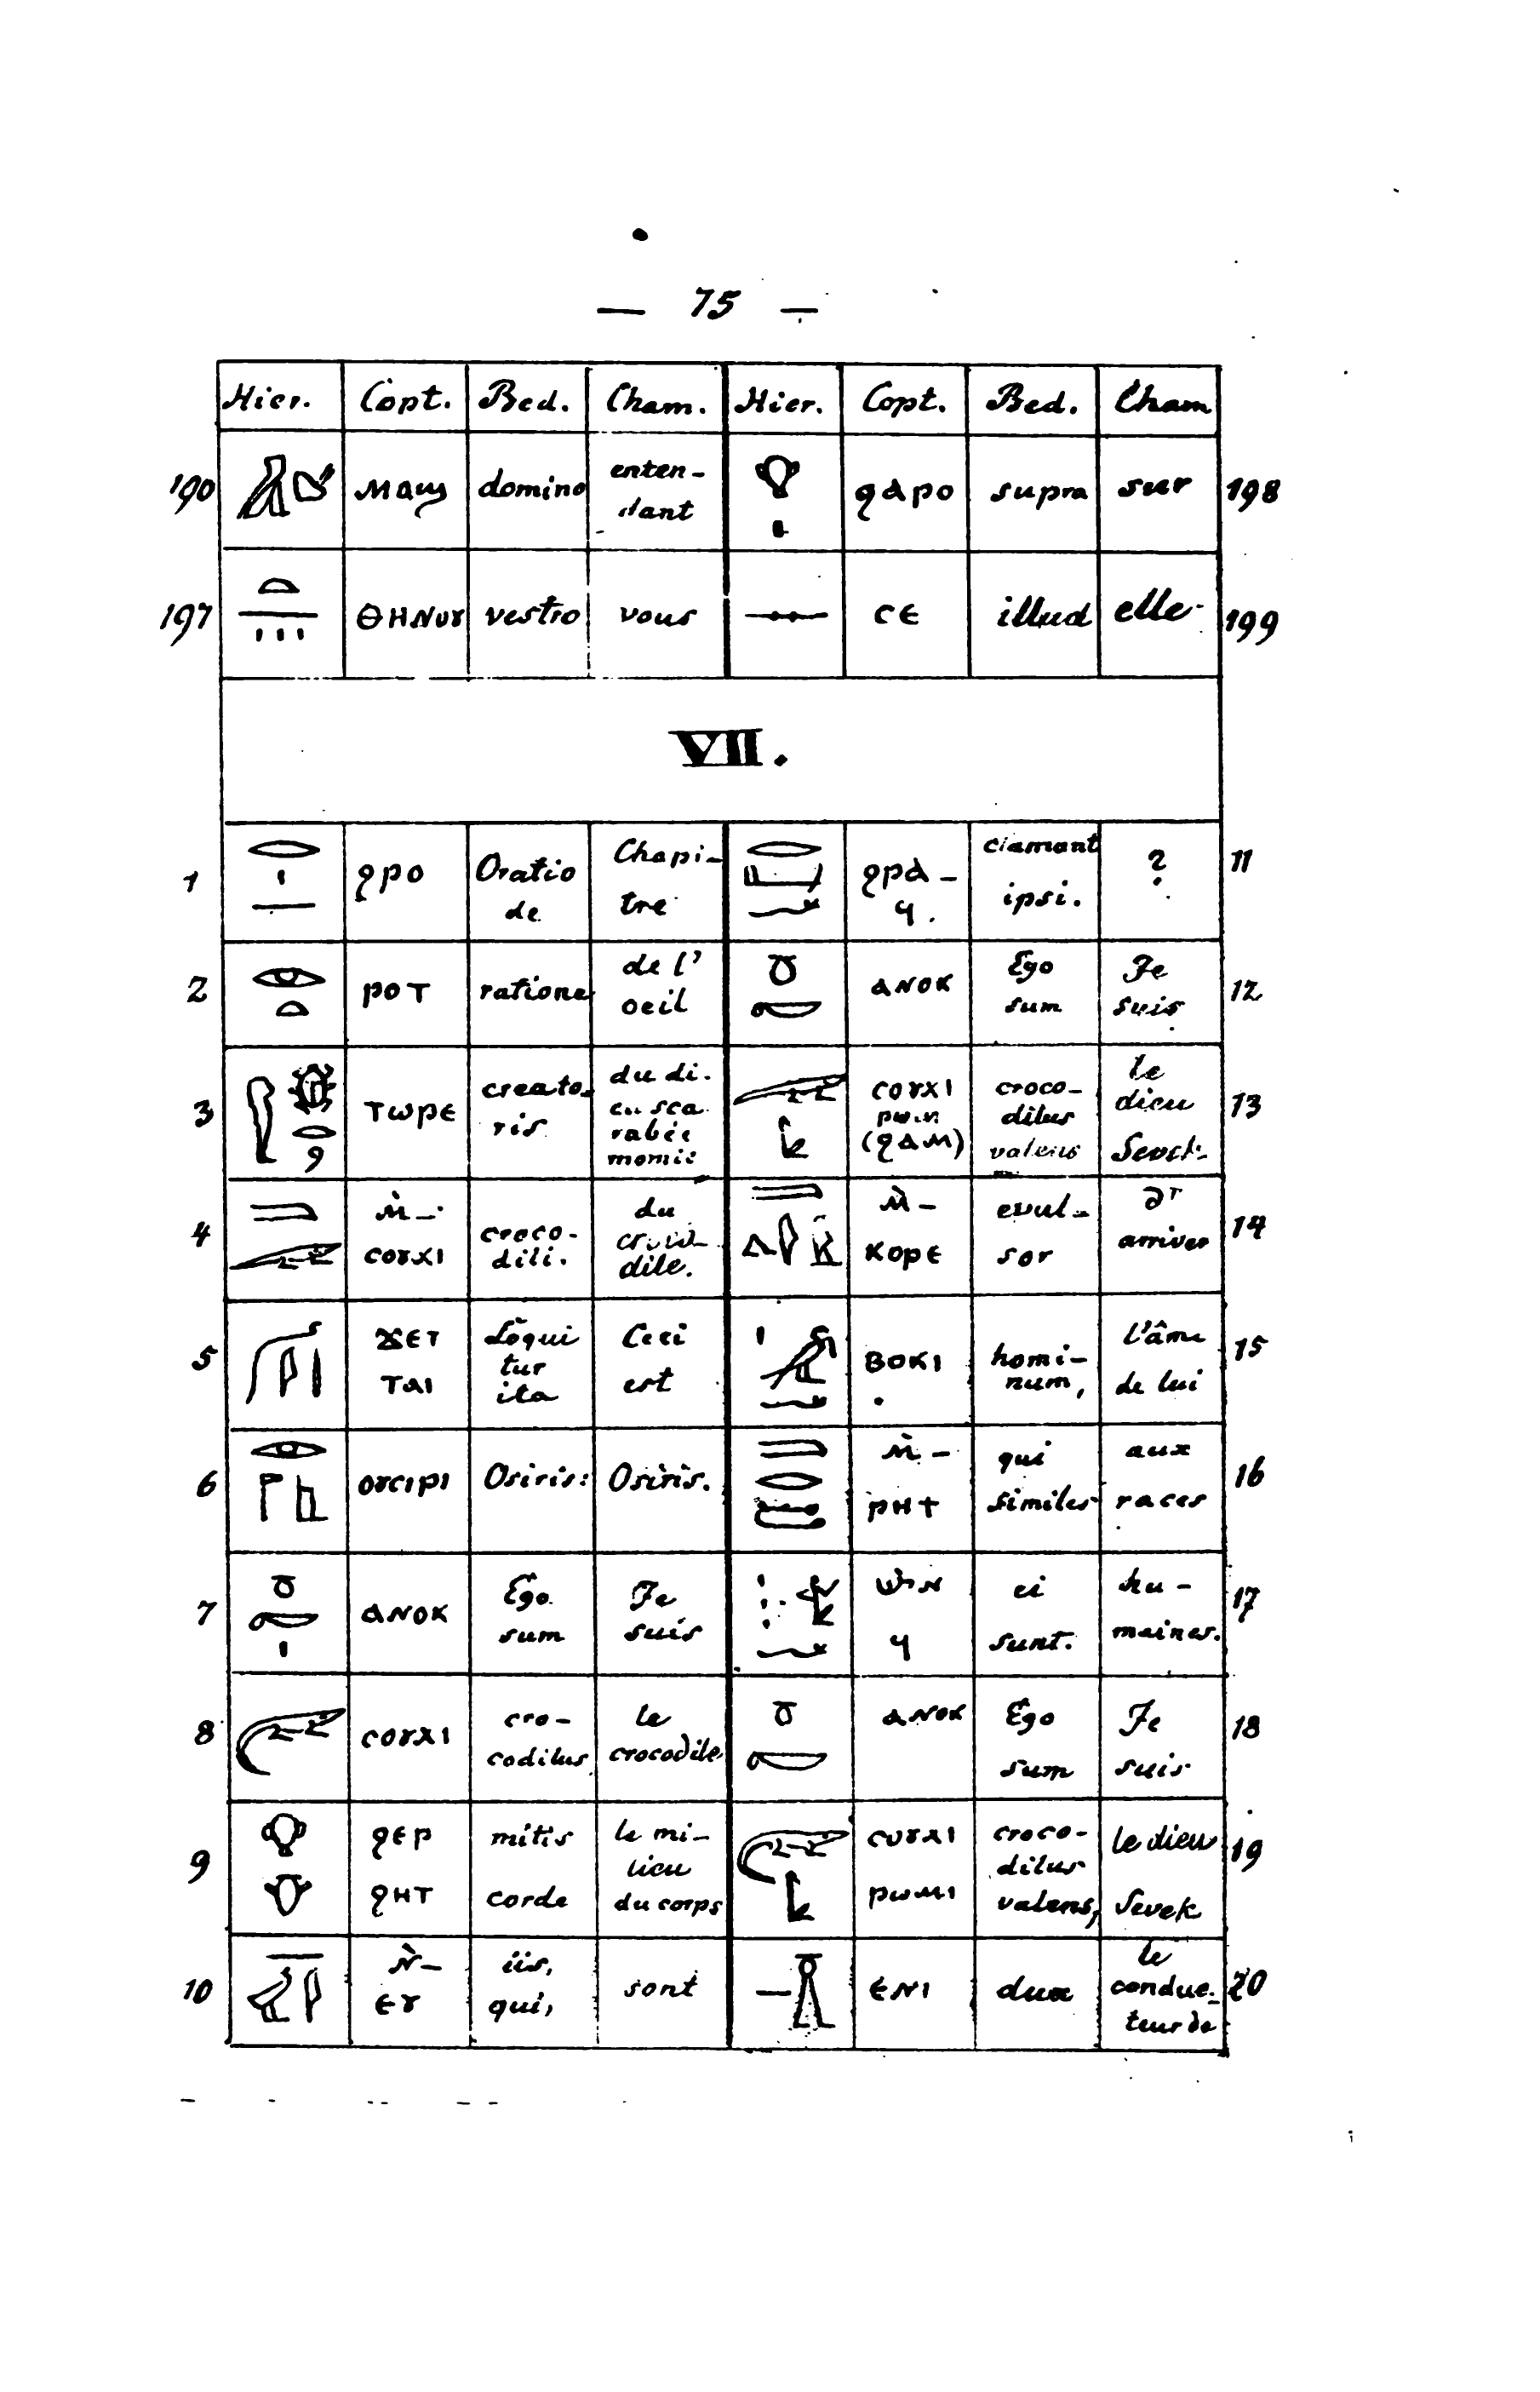 — 75 —
Hier. Copt. Bed. Cham. Hier. Copt. Bed. Cham
190 ⲙⲁϣ domino enten-dant ϩⲁⲣⲟ supra sur 198
197 ⲑⲏⲛⲟⲩ vestro vous ⲥⲉ illud elle 199
VII.
1 ϩⲣⲟ Oratio de Chapi-tre ϩⲣⲁ-ϥ. clamant ipsi. ? 11
2 ⲣⲟⲧ ratione de l' oeil ⲁⲛⲟⲕ Ego sum Je suis 12
3 ⲧⲱⲣⲉ creato-ris du di-eu sca-rabée momie ⲥⲟⲩⲭⲓ (ϩⲁⲙ) croco-dilus valens le dieu Sevek 13
4 ⲙ̀- ⲥⲟⲩⲭⲓ croco-dili. du croco-dile. ⲙ̀- ⲕⲟⲣⲉ evul-sor arriver 14
5 ϫⲉⲧ ⲧⲁⲓ Loqui tur ita Ceci est ⲃⲟⲕⲓ homi-num, l'âme de lui 15
6 ⲟⲩⲥⲓⲣⲓ Osiris: Osiris. ⲙ̀- ⲣⲏⲧ qui similes aux races 16
7 ⲁⲛⲟⲕ Ego sum Je suis ϥ ei sunt. hu-maines. 17
8 ⲥⲟⲩⲭⲓ cro-codilus le crocodile ⲁⲛⲟⲕ Ego sum Je suis 18
9 ϩⲉⲣ ϩⲏⲧ mitis corde le mi-lieu du corps ⲥⲟⲩⲭⲓ ⲣⲱⲙⲓ croco-dilus valens, le dieu Sevek 19
10 ⲛ̀- ⲉⲩ iis, qui, sont ⲉⲛⲓ dux le conduc-teur de 20